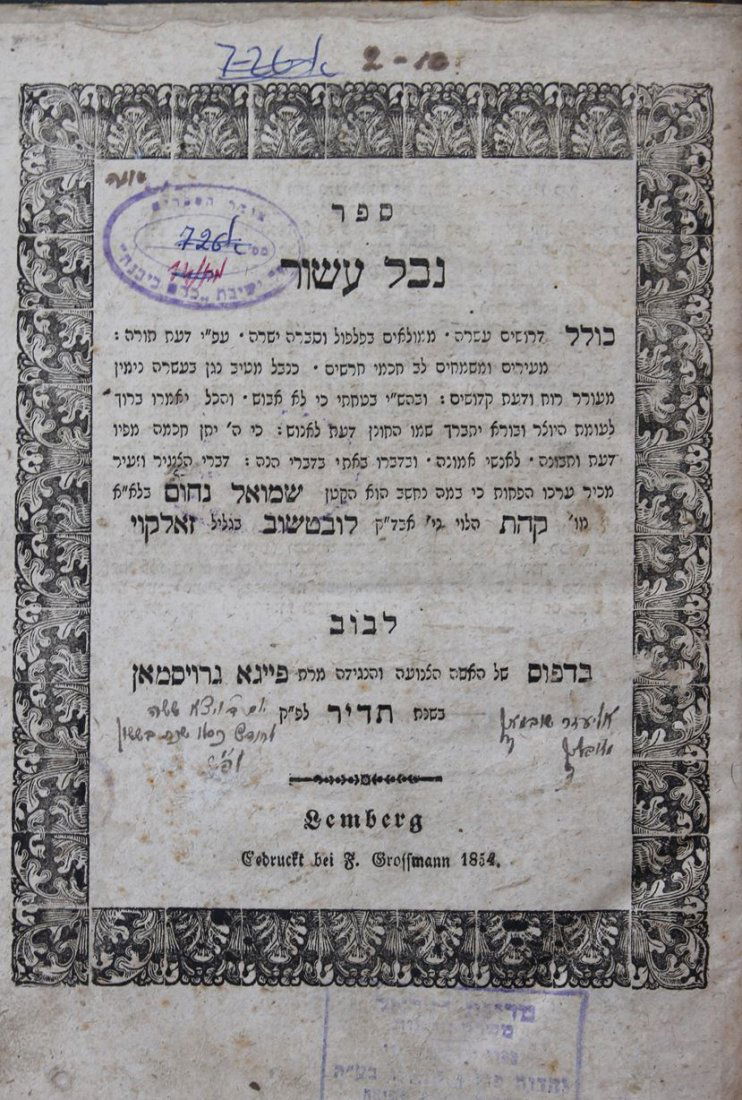 7-26 א
2-10
אוצר הספרים
726 א
ישיבת "כרם ביבנה"
ספר
נבל עשור
כולל דרושים עשרה · ממולאים בפלפול וסברה ישרה · עפ"י דעת תורה :
מעירים ומשמחים לב חכמי חרשים · כנבל מטיב נגן בעשרה נימין
מעורר רוח ודעת קדושים : ובהש"י בטחתי כי לא אבוש · והכל יאמרו ברוך
לעומת היוצר ובורא יתברך שמו החונן דעת לאנוש : כי ה' יתן חכמה מפיו
דעת ותבונה · לאנשי אמונה · ובדברו באתי בדברי הנה : דברי הצעיר וזעיר
מכיר ערכו הפחות כי במה נחשב הוא הקטן שמואל נחום בלא"א
מו' קהת הלוי ני' אבד"ק לובטשוב בגליל זאלקוי
לבוב
בדפוס של האשה הצנועה והנגידה מרת פייגא גרויסמאן
בשנת תדיר לפ"ק
Lemberg
Gedruckt bei F. Grossmann 1854.